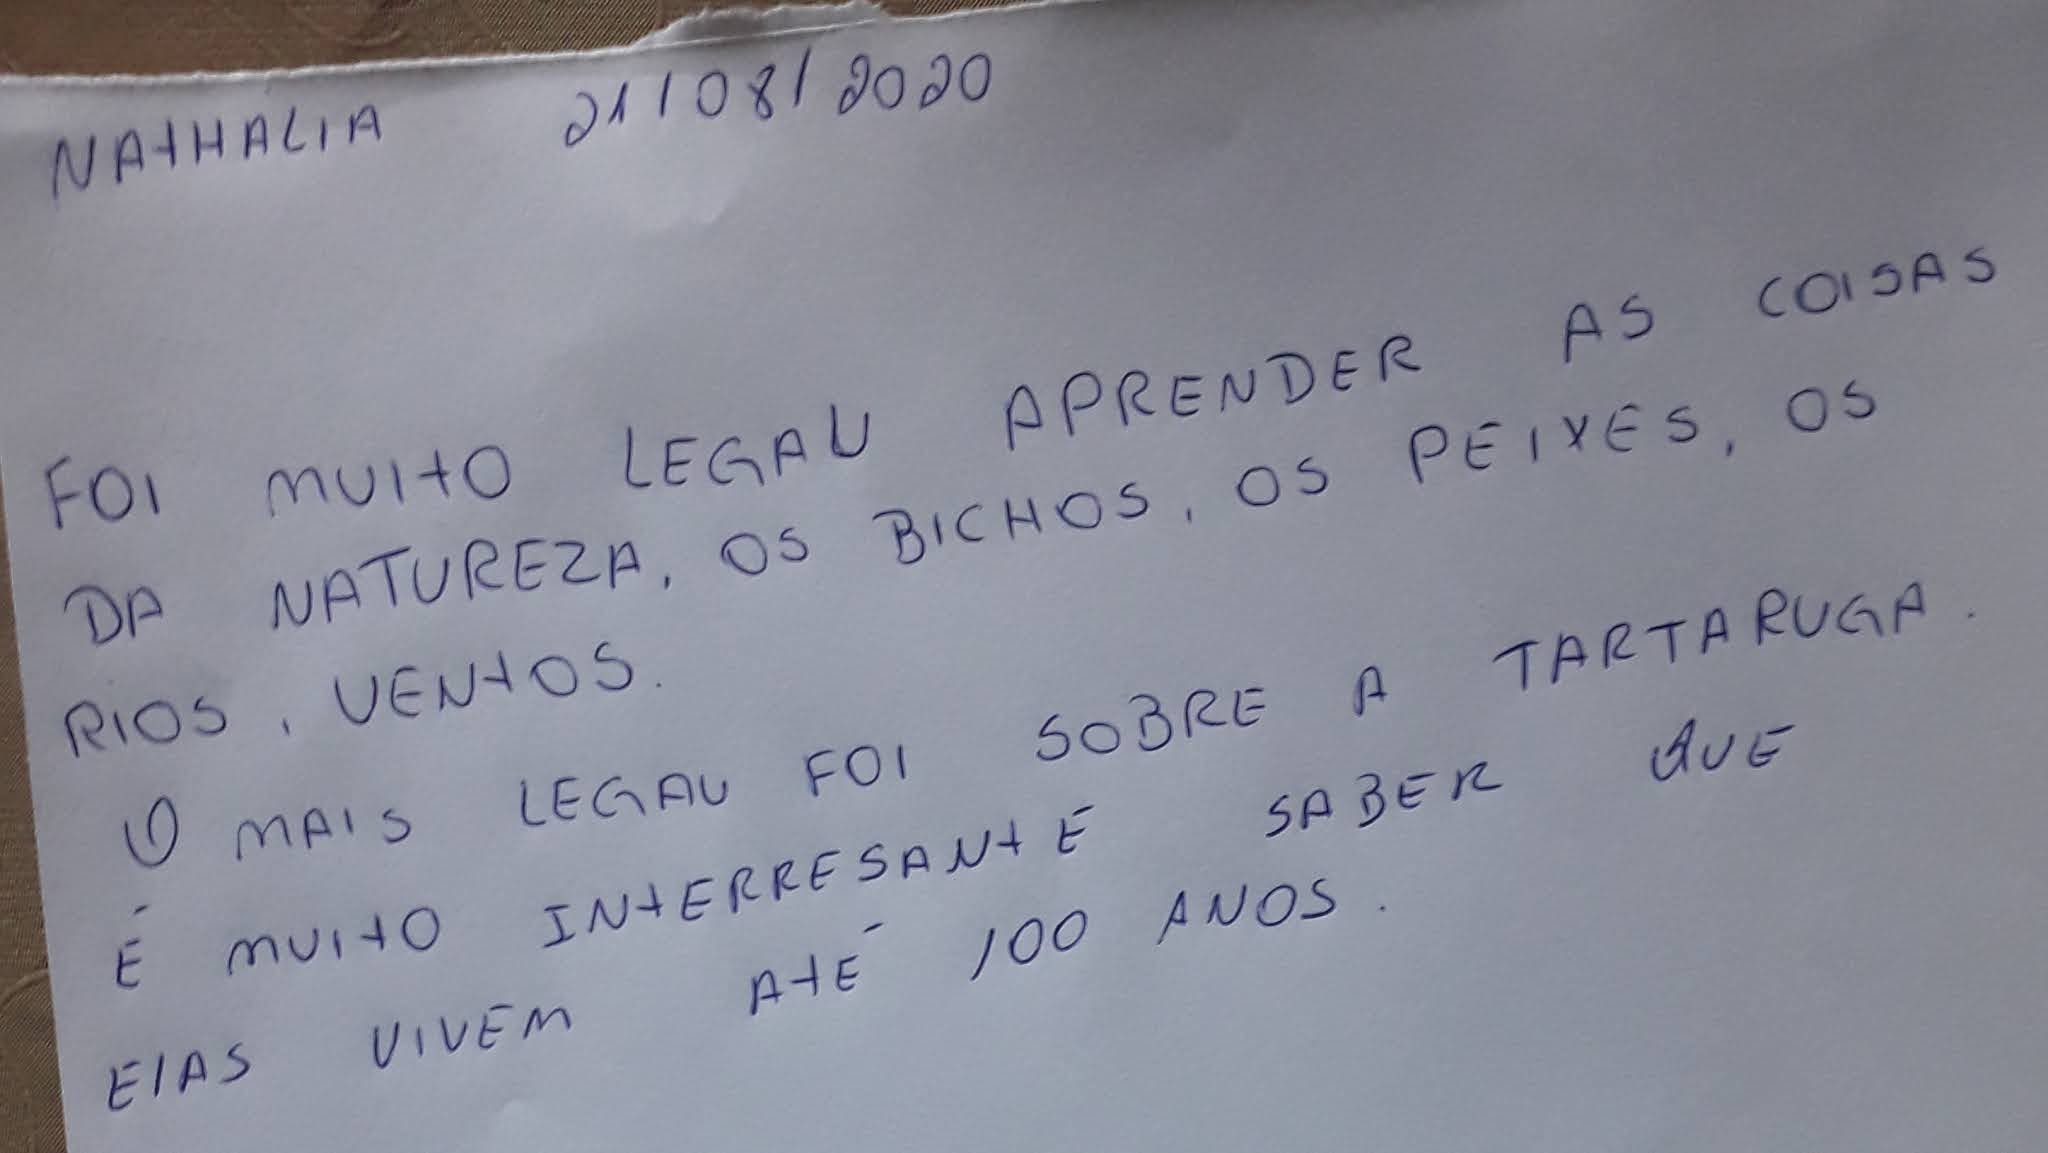 NATHALIA 21/08/2020
FOI MUITO LEGAU APRENDER AS COISAS
DA NATUREZA, OS BICHOS, OS PEIXES, OS
RIOS, VENTOS.
O MAIS LEGAU FOI SOBRE A TARTARUGA.
É MUITO INTERRESANTE SABER QUE
ElAS VIVEM ATÉ 100 ANOS.